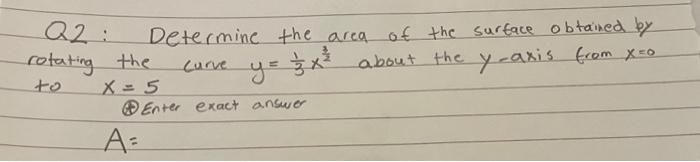 Q2: Determine the area of the surface obtained by
rotating the curve y = 1/3 x^3/2 about the y-axis from x=0
to x = 5
⊛ Enter exact answer
A=